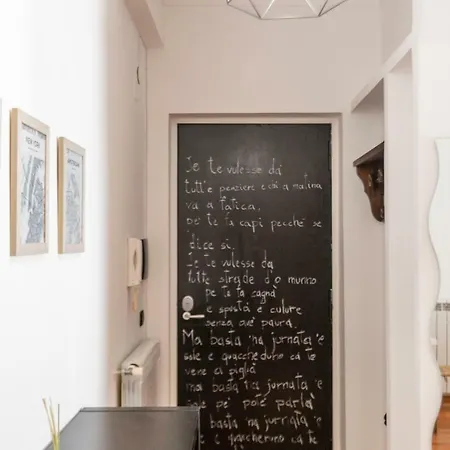 NEW YORK
Je te vulesse da'
tutt'e penziere e chi a matina
va a fatica,
pe' te fa capì pecché se
'dice sì.
Je te vulesse da
tutte strade d'o munno
pe te fa cagnà
e spustà e culure
senza avé paura.
Ma basta 'na jurnata 'e
sole e quaccheduno ca te
vene a piglià
ma basta na jurnata 'e
sole pe' poté parlà
basta 'na jurnata 'e
e quaccheruno ca te